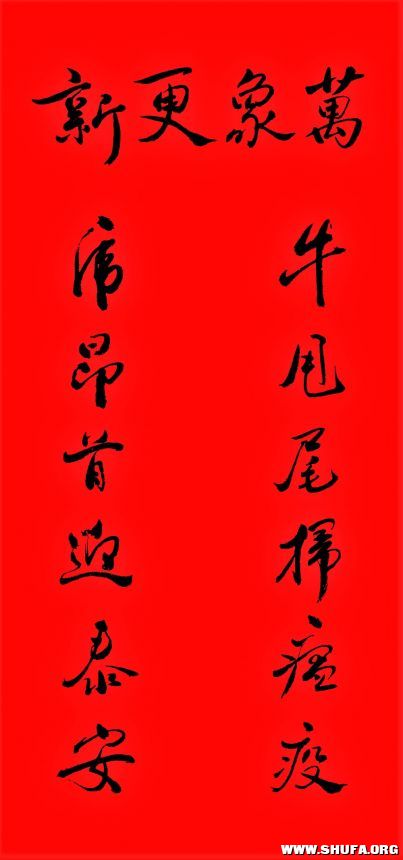 萬象更新
牛甩尾掃瘟疫
虎昂首迎泰安
WWW.SHUFA.ORG